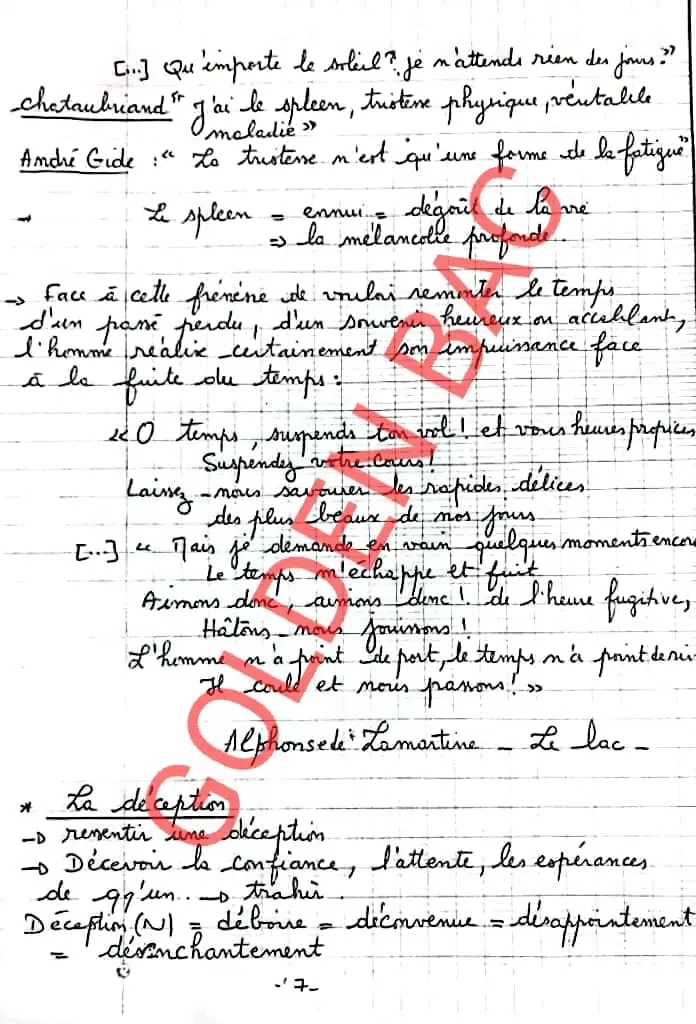 [...] Qu'importe le soleil? je n'attends rien des jours."
Chataubriand " J'ai le spleen, tristesse physique, véritable
maladie"
André Gide : " La tristesse n'est qu'une forme de la fatigue"
→ Le spleen = ennui = dégoût de la vie
⇒ la mélancolie profonde.
→ Face à cette frénésie de vouloi remonter le temps
d'un passé perdu, d'un souvenir heureux ou accablant,
l'homme réalise certainement son impuissance face
à la fuite du temps :
<< O temps, suspends ton vol! et vous heures propices
Suspendez votre cours!
Laissez-nous savourer les rapides délices
des plus beaux de nos jours
[...] " Mais je demande en vain quelques moments encor
Le temps m'échappe et fuit
Aimons donc, aimons donc! de l'heure fugitive,
Hâtons-nous jouissons!
L'homme n'a point de port, le temps n'a point de ri
Il coule et nous passons! >>
Alphonse de Lamartine - Le lac -
* La déception
→ ressentir une déception
→ Décevoir la confiance, l'attente, les espérances
de qq'un.. → trahir.
Déception (N) = déboire = déconvenue = désappointement
= désenchantement
-7-
GOLDEN BAC